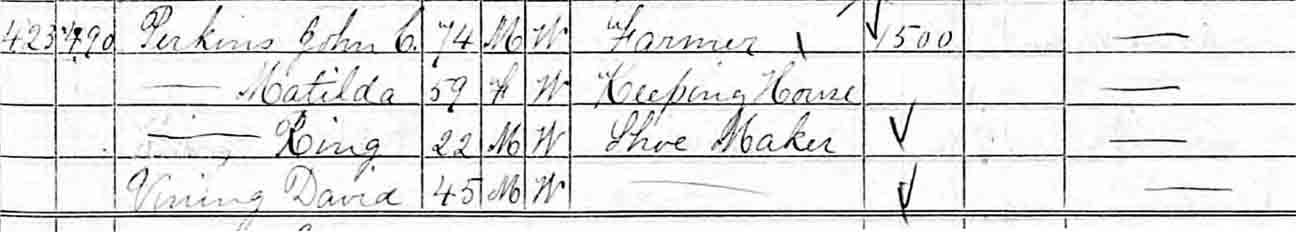 423 490 Perkins John C. 74 M W Farmer 1500 —
— Matilda 59 F W Keeping House —
— King 22 M W Shoe Maker ✓ —
Vining David 45 M W — ✓ —